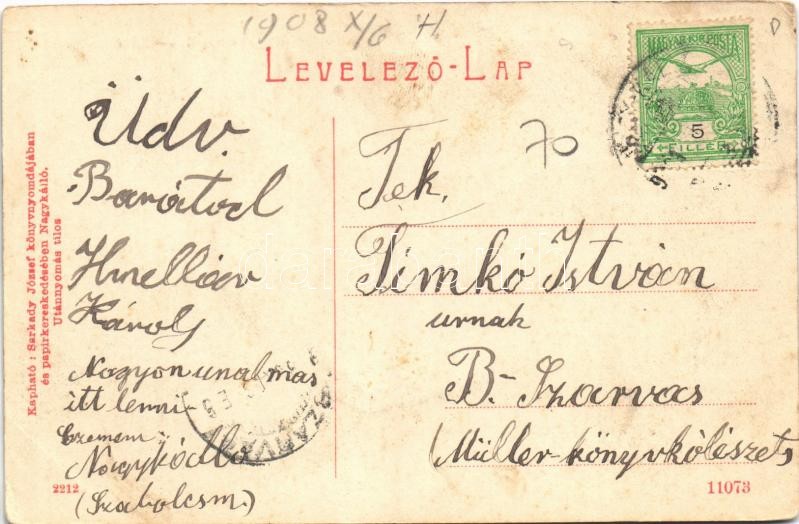 1908 X/6 H
LEVELEZŐ-LAP
MAGYAR KIR. POSTA
5
FILLÉR
70
Üdv.
Barátod
Károly
Nagyon unalmas
itt lenni.
Czemem:
Nagykálló
(Szabolcsm.)
Tek.
Timkó István
urnak
B-Szarvas
(Müller-könyvkölészet)
Kapható: Sarkady József könyvnyomdájában
és papirkereskedésében Nagykálló.
Utánnyomás tilos
2212
11073